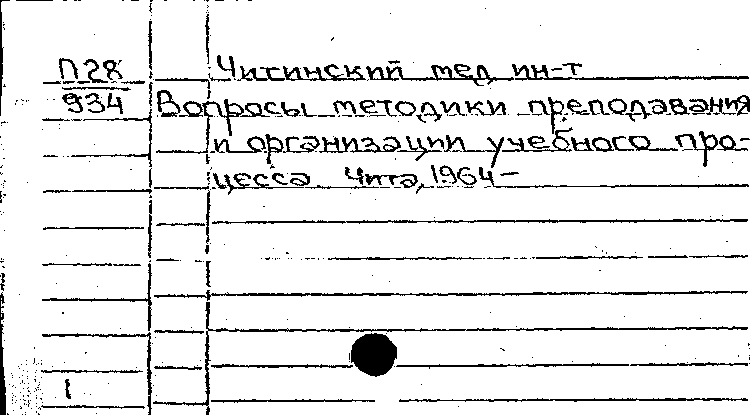 П28 Читинский мед ин-т
934 Вопросы методики преподавания
и организации учебного про-
цесса Чита, 1964-
1